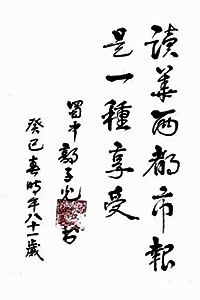 讀華西都市報
是一種享受
蜀中
癸巳春時年八十一歲